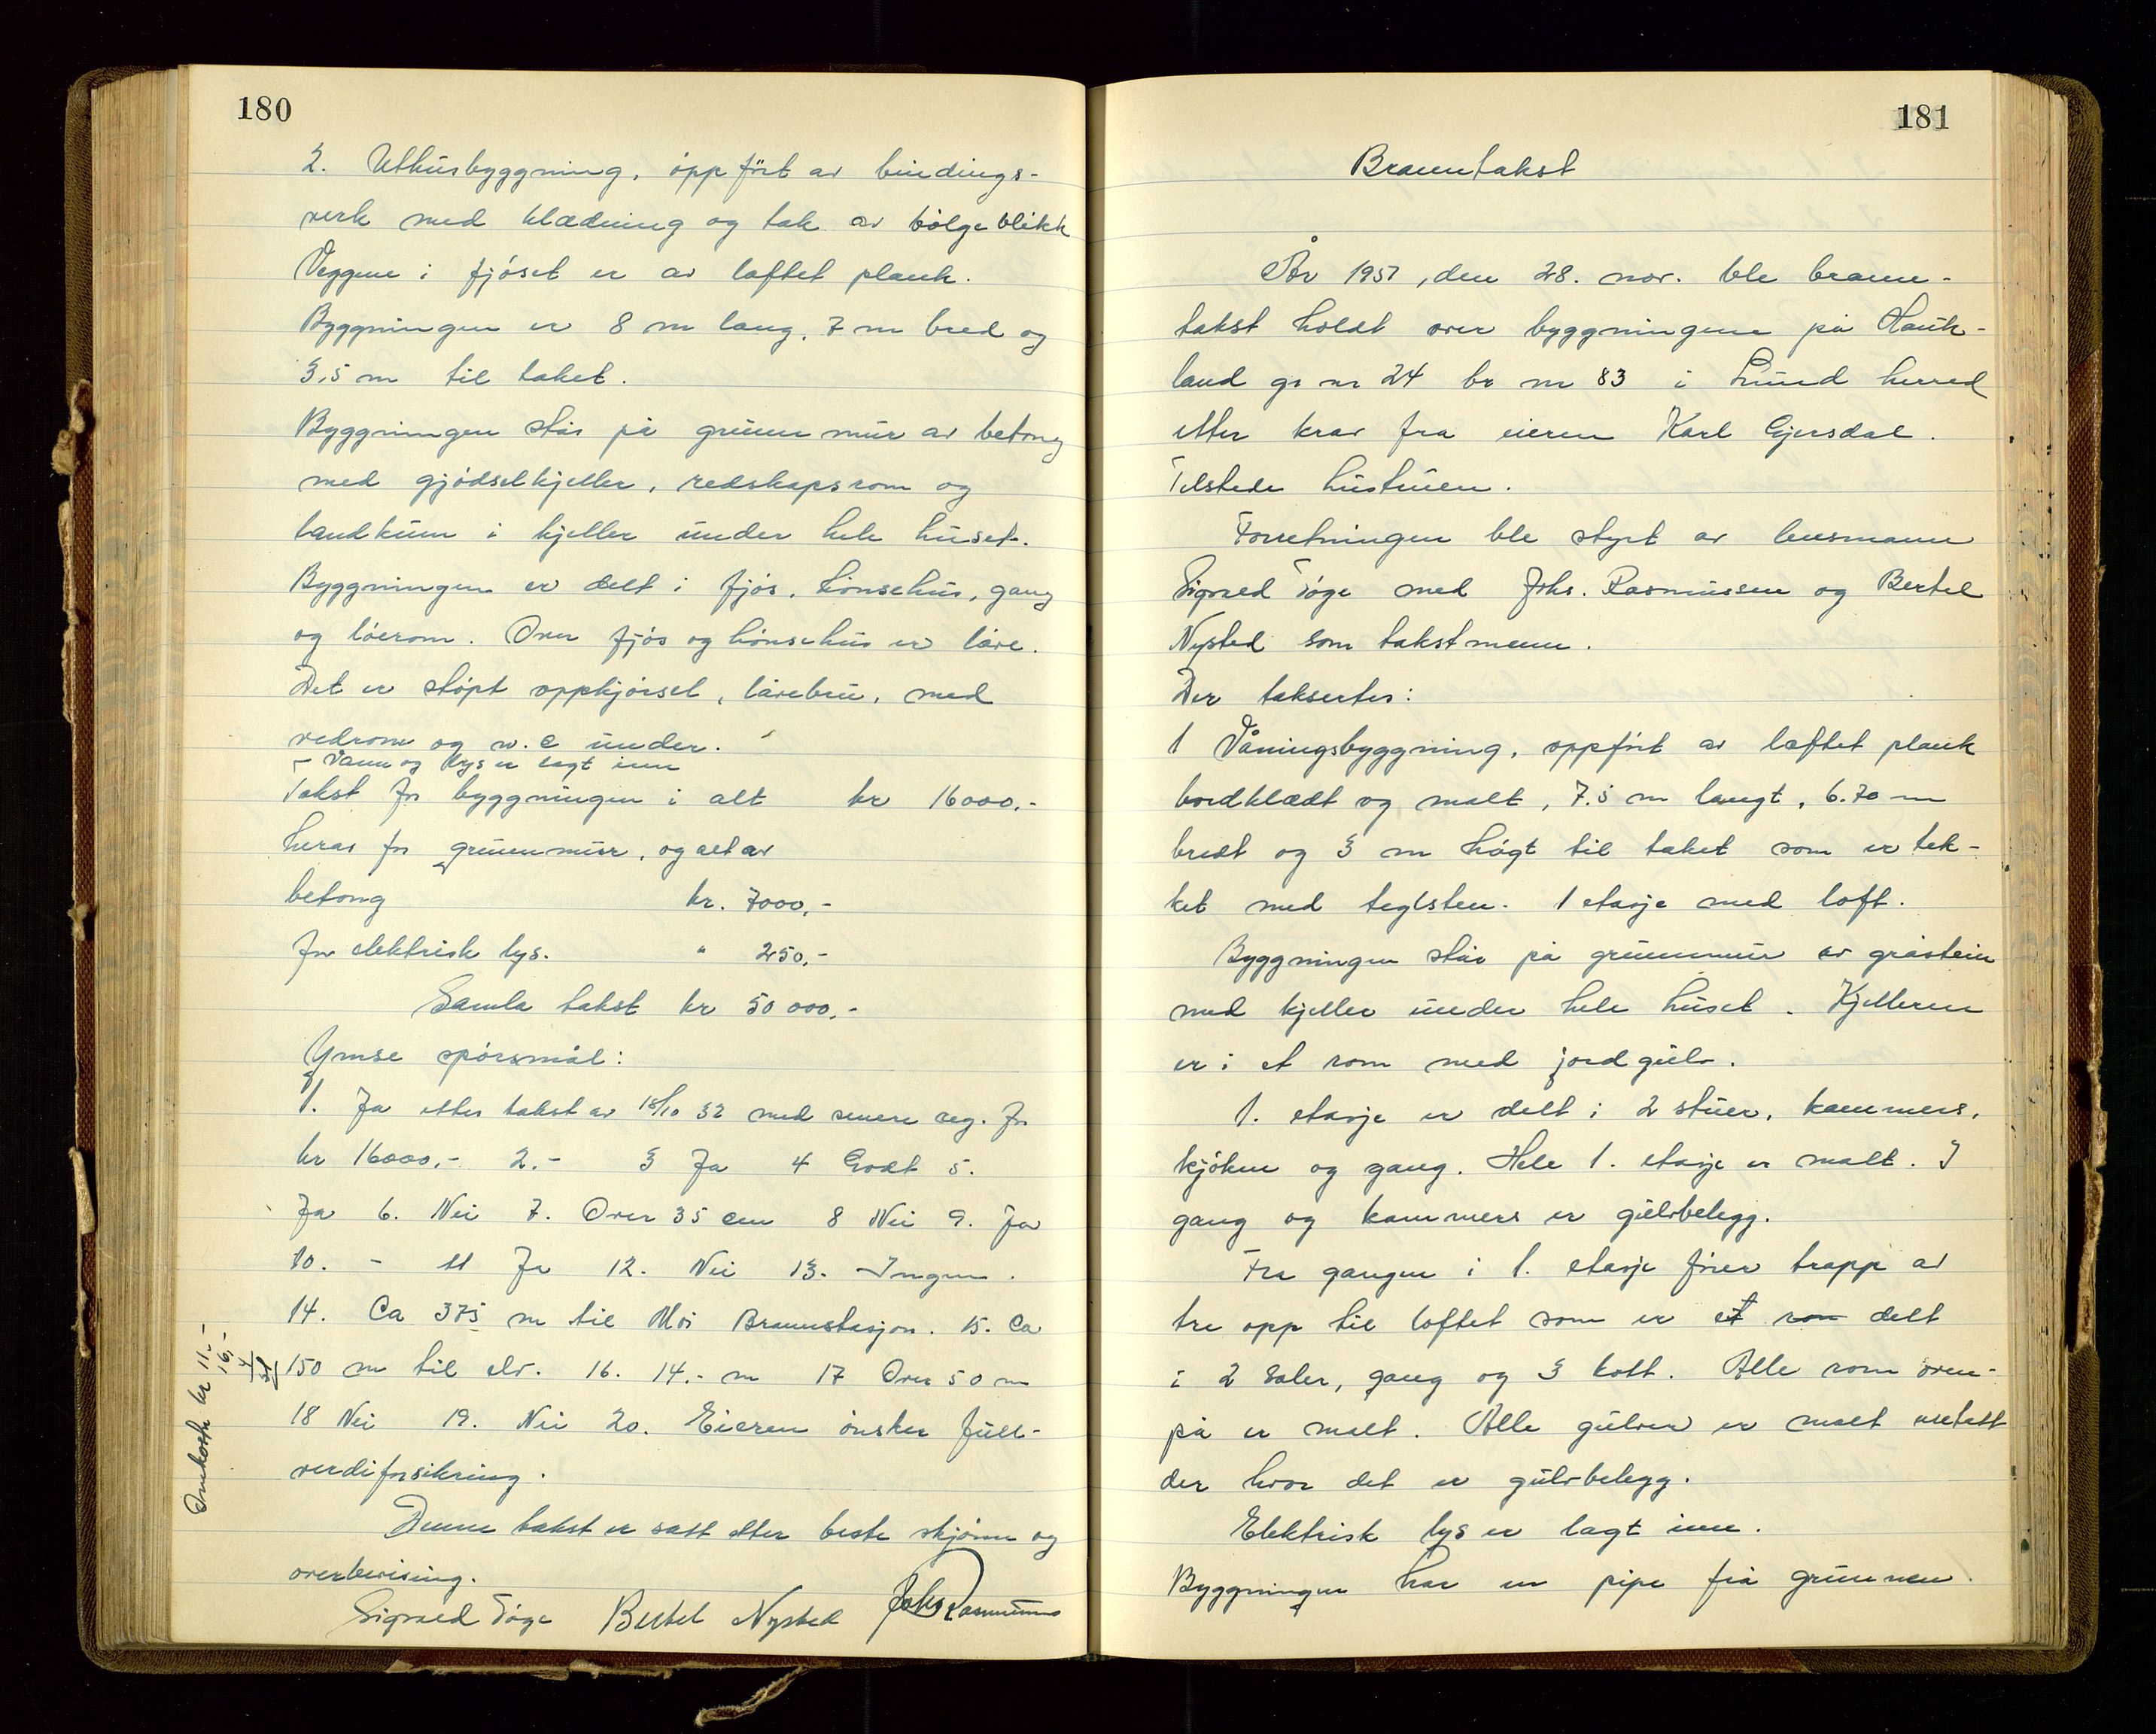 180
2. Uthusbyggning, oppført av bindings-
verk med klædning og tak av bølgeblikk
Veggene i fjøset er av laftet plank.
Byggningen er 8 m lang, 7 m bred og
3,5 m til taket.
Byggningen står på grunnmur av betong
med gjødselkjeller, redskapsrom og
landkum i kjeller under hele huset.
Byggningen er delt i fjøs, hønsehus, gang
og løerom. Over fjøs og hønsehus er låve.
Det er støpt oppkjørsel, låvebru, med
vedrom og w.c under.
Vann og lys er lagt inn
Takst for byggningen i alt kr 16000,-
herav for grunnmur, og alt av
betong kr. 7000,-
for elektrisk lys. " 250,-
Samla takst kr 50 000,-
Ymse spørsmål:
1. Ja etter takst av 18/10 32 med senere reg. for
kr 16000,- 2.- 3 Ja 4 Godt 5.
Ja 6. Nei 7. Over 35 cm 8 Nei 9. Ja
10. - 11 Ja 12. Nei 13. Ingen.
14. Ca 375 m til Moi Brannstasjon. 15. Ca
150 m til elv. 16. 14.- m 17 Over 50 m
18 Nei 19. Nei 20. Eieren ønsker full-
verdiforsikring.
Denne takst er satt etter beste skjønn og
overbevisning.
Sigvald Tøge Bertel Nysted Johs Rasmussen
Omkostn kr 11,-
16,-
4
31
181
Branntakst
År 1957, den 28. nov. ble brann-
takst holdt over byggningene på Hauk-
land gr nr 24 br nr 83 i Lund herred
etter krav fra eieren Karl Gjersdal.
Tilstede hustruen.
Forretningen ble styrt av lensmann
Sigvald Tøge med Johs. Rasmussen og Bertel
Nysted som takstmenn.
Der taksertes:
1 Våningsbyggning, oppført av laftet plank
bordklædt og malt, 7.5 m langt, 6.70 m
bredt og 3 m høgt til taket som er tek-
ket med teglsten. 1 etasje med loft.
Byggningen står på grunnmur av gråstein
med kjeller under hele huset. Kjelleren
er i et rom med jordgulv.
1. etasje er delt i 2 stuer, kammers,
kjøken og gang. Hele 1. etasje er malt. I
gang og kammers er gulvbelegg.
Fra gangen i 1. etasje fører trapp av
tre opp til loftet som er et rom delt
i 2 saler, gang og 3 kott. Alle rom oven-
på er malt. Alle gulver er malt untatt
der hvor det er gulvbelegg.
Elektrisk lys er lagt inn.
Byggningen har en pipe frå grunnen.